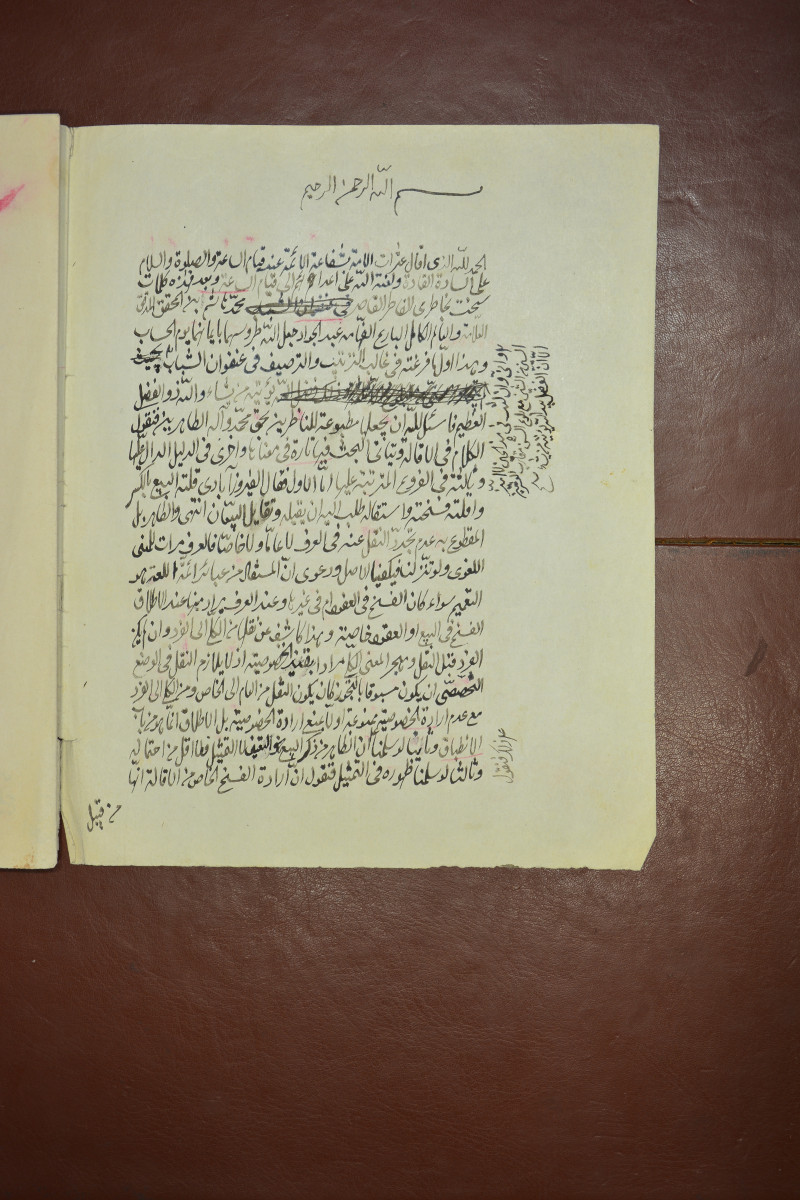 بسم الله الرحمن الرحيم
الحمد لله الذى اقال عثرات الامة بشفاعة الائمة عند قيام الساعة والصلوة والسلام
على السادة القادة ولعنة الله على اعدائهم الى قيام الساعة وبعد فهذه كلمات
سنحت بخاطرى الفاتر القاصر محمد هاشم ابن المحقق المدقق
العلامة والعالم الكامل البارع الفهامة عبد الجواد جعل الله طروسها بايمانهما يوم الحساب
وهذا اول ما فرغته فى غالب الترتيب والترصيف فى عنفوان الشباب
يؤتيه من يشاء والله ذو الفضل
العظيم فاسئل الله ان يجعلها مطبوعة للناظرين بحق محمد وآله الطاهرين فنقول
الكلام فى الاقالة وياتى البحث فيها تارة فى معناها واخرى فى الدليل الدال عليها
وثالثة فى الفروع المترتبة عليها اما الاول فقال الفيروزآبادى قلته البيع بالكسر
واقلته فسخته واستقاله طلب اليه ان يقيله وتقايل البيعان انتهى والظاهر بل
المقطوع به عدم تجدد النقل عنه فى العرف لا عاما ولا خاصا فالعرف مرات للمعنى
اللغوى ولو تنزلنا فيكفينا الاصل ودعوى ان المستفاد من عبائر ائمة اللغة هو
التعميم سواء كان الفسخ فى العقود ام فى غيرها وعند العرف يراد منها عند الاطلاق
الفسخ فى البيع او العقود خاصة وهذا كاشف عن نقلها من الكلى الى الفرد وان لم يكن
الفرد قبل النقل وهجر المعنى الكلى مرادا بقيد الخصوصية اذ لا يلازم النقل فى الوضع
التخصصى ان يكون مسبوقا بالتجوز كان يكون النقل من العام الى الخاص ومن الكلى الى الفرد
مع عدم ارادة الخصوصية ممنوعة اولا بمنع ارادة الخصوصية بل الاطلاق انما هو من باب
الانطباق وثانيا لو سلمنا ان الظاهر من ذكر البيع هو التقييد لا التمثيل فلا اقل من احتماله
وثالثا لو سلمنا ظهوره فى التمثيل فنقول ان ارادة الفسخ الخاص من الاقالة انما
من قبيل